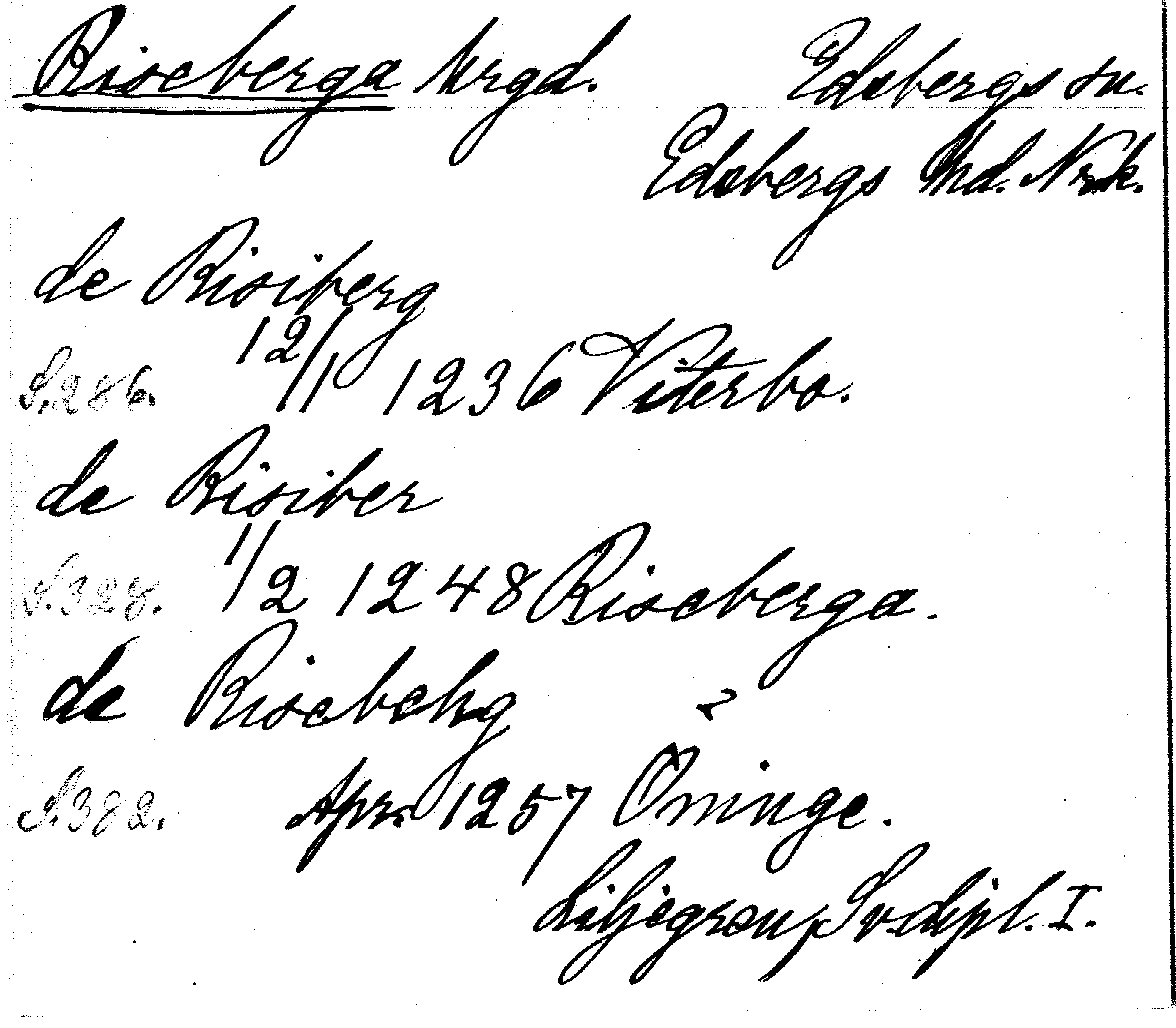 Riseberga hrgd. Edsbergs sn.
Edsbergs hd. Nrk.
de Risiberg
S. 286. 12/1 1236 Viterbo.
de Risiber
S. 328. 1/2 1248 Riseberga.
de Risebehg
S. 382. Apr. 1257 Öninge.
Liljegren, Sv. dipl. I.